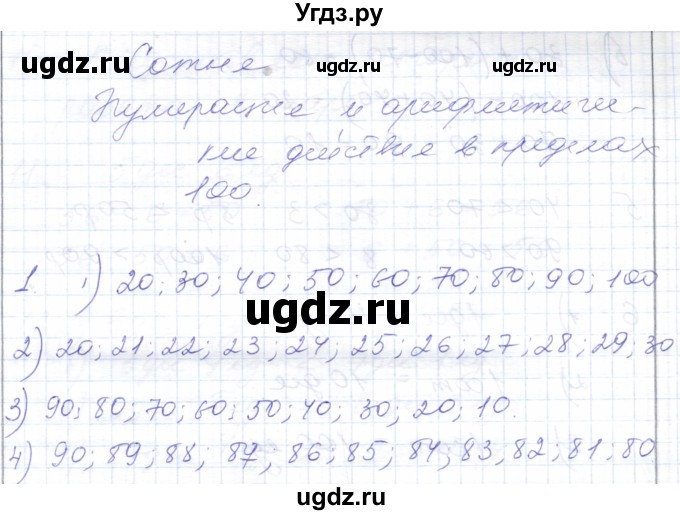 Угдз.ру
Сотня.
Нумерация и арифметиче-
ские действия в пределах
100.
1. 1) 20; 30; 40; 50; 60; 70; 80; 90; 100
2) 20; 21; 22; 23; 24; 25; 26; 27; 28; 29; 30
3) 90; 80; 70; 60; 50; 40; 30; 20; 10.
4) 90; 89; 88; 87, 86; 85; 84, 83, 82; 81; 80
ugdz.ru
ugdz.ru
ugdz.ru
ugdz.ru
ugdz.ru
ugdz.ru
ugdz.ru
ugdz.ru